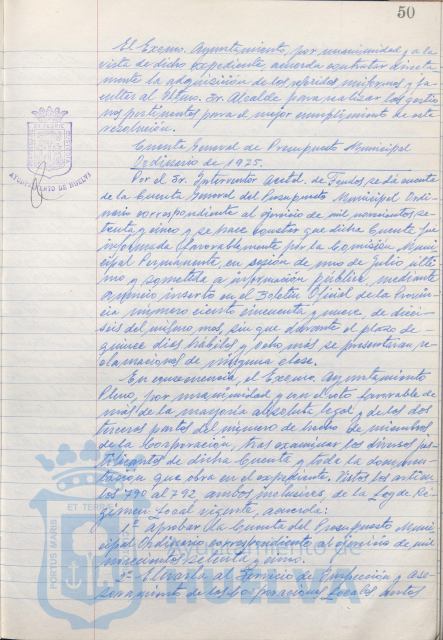 50
El Excmo. Ayuntamiento, por unanimidad y a la
vista de dicho expediente acuerda contratar directa-
mente la adquisición de los referidos uniformes y fa-
cultar al Iltmo. Sr. Alcalde para realizar las gestio-
nes pertinentes para el mejor cumplimiento de esta
resolución.
Cuenta General de Presupuesto Municipal
Ordinario de 1975.
Por el Sr. Interventor Acctal. de Fondos se dá cuenta
de la Cuenta General del Presupuesto Municipal Ordi-
nario correspondiente al ejercicio de mil novecientos se-
tenta y cinco y se hace constar que dicha Cuenta fue
informada favorablemente por la Comisión Muni-
cipal Permanente, en sesión de uno de Julio últi-
mo y sometida a información pública, mediante
anuncio inserto en el Boletín Oficial de la Provin-
cia número ciento cincuenta y nueve, de dieci-
séis del mismo mes, sin que durante el plazo de
quince días hábiles y ocho más se presentaran re-
clamaciones de ninguna clase.
En consecuencia, el Excmo. Ayuntamiento
Pleno, por unanimidad y con el voto favorable de
más de la mayoría absoluta legal y de las dos
terceras partes del número de hecho de miembros
de la Corporación, tras examinar los diversos jus-
tificantes de dicha Cuenta y toda la documen-
tación que obra en el expediente. Vistos los artícu-
los 790 al 792, ambos inclusives, de la Ley de Ré-
gimen Local vigente, acuerda:
1º Aprobar la Cuenta del Presupuesto Muni-
cipal Ordinario correspondiente al ejercicio de mil
novecientos setenta y
2º Elevarla al Servicio de Inspección y Ase-
soramiento de las Corporaciones Locales
AYUNTAMIENTO DE HUELVA
PORTUS MARIS
ET TERR
Ayuntamiento de
HUELVA